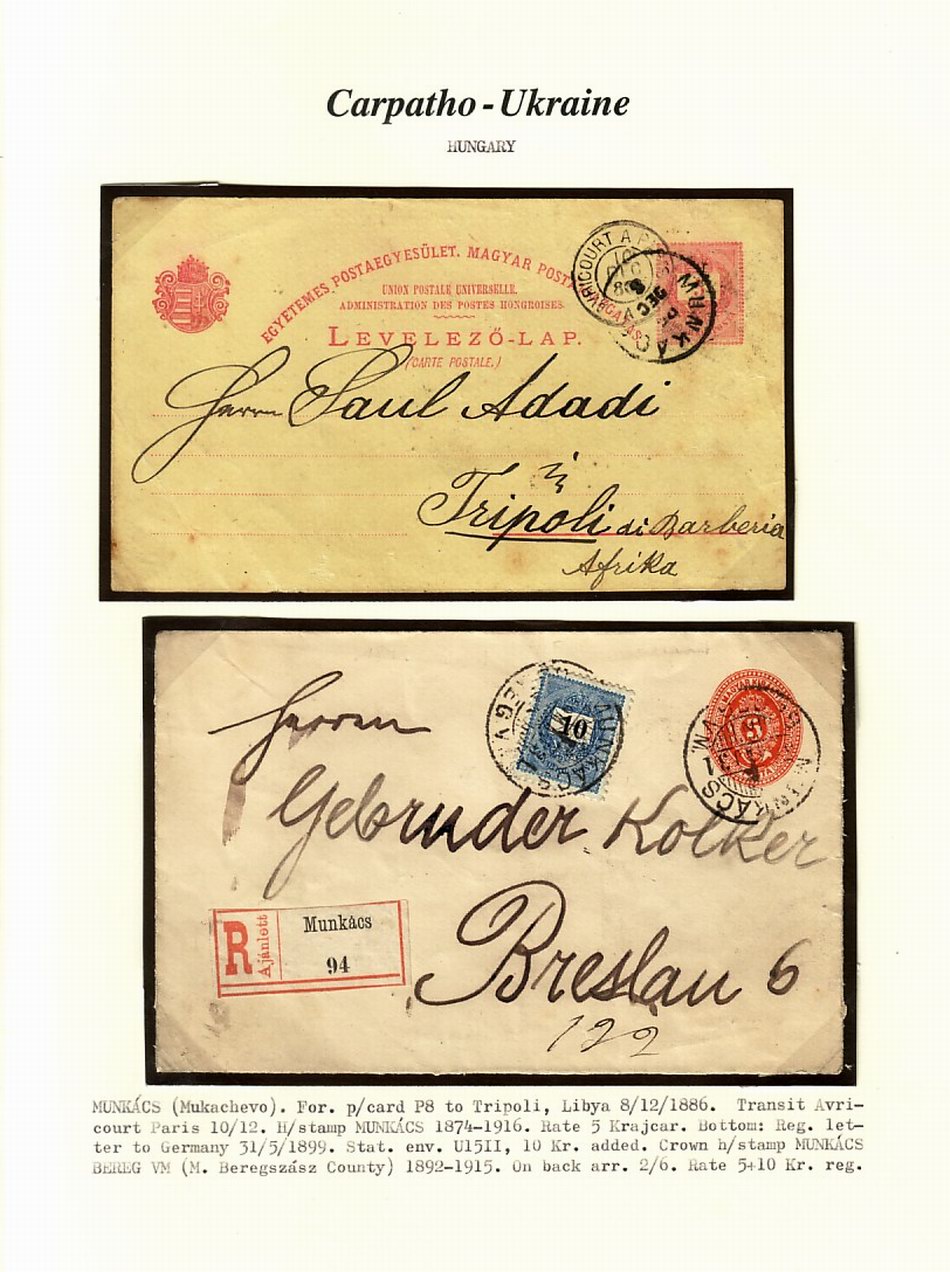 Carpatho - Ukraine
HUNGARY
EGYETEMES POSTAEGYESÜLET. MAGYAR
UNION POSTALE UNIVERSELLE.
ADMINISTRATION DES POSTES HONGROISES.
LEVELEZŐ-LAP.
(CARTE POSTALE.)
AVRICOURT A
MUNKÁCS
Herrn Saul Adadi
Tripoli di Barberia
Afrika
Herrn
10
MUNKÁCS
MUNKÁCS
Gebruder Kolker
R Ajánlott
Munkács
94
Breslau 6
122
MUNKÁCS (Mukachevo). For. p/card P8 to Tripoli, Libya 8/12/1886. Transit Avri-
court Paris 10/12. H/stamp MUNKÁCS 1874-1916. Rate 5 Krajcar. Bottom: Reg. let-
ter to Germany 31/5/1899. Stat. env. U15II, 10 Kr. added. Crown h/stamp MUNKÁCS
BEREG VM (M. Beregszász County) 1892-1915. On back arr. 2/6. Rate 5+10 Kr. reg.